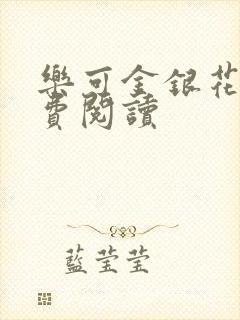 樂可金銀花
費閱讀
藍莹莹